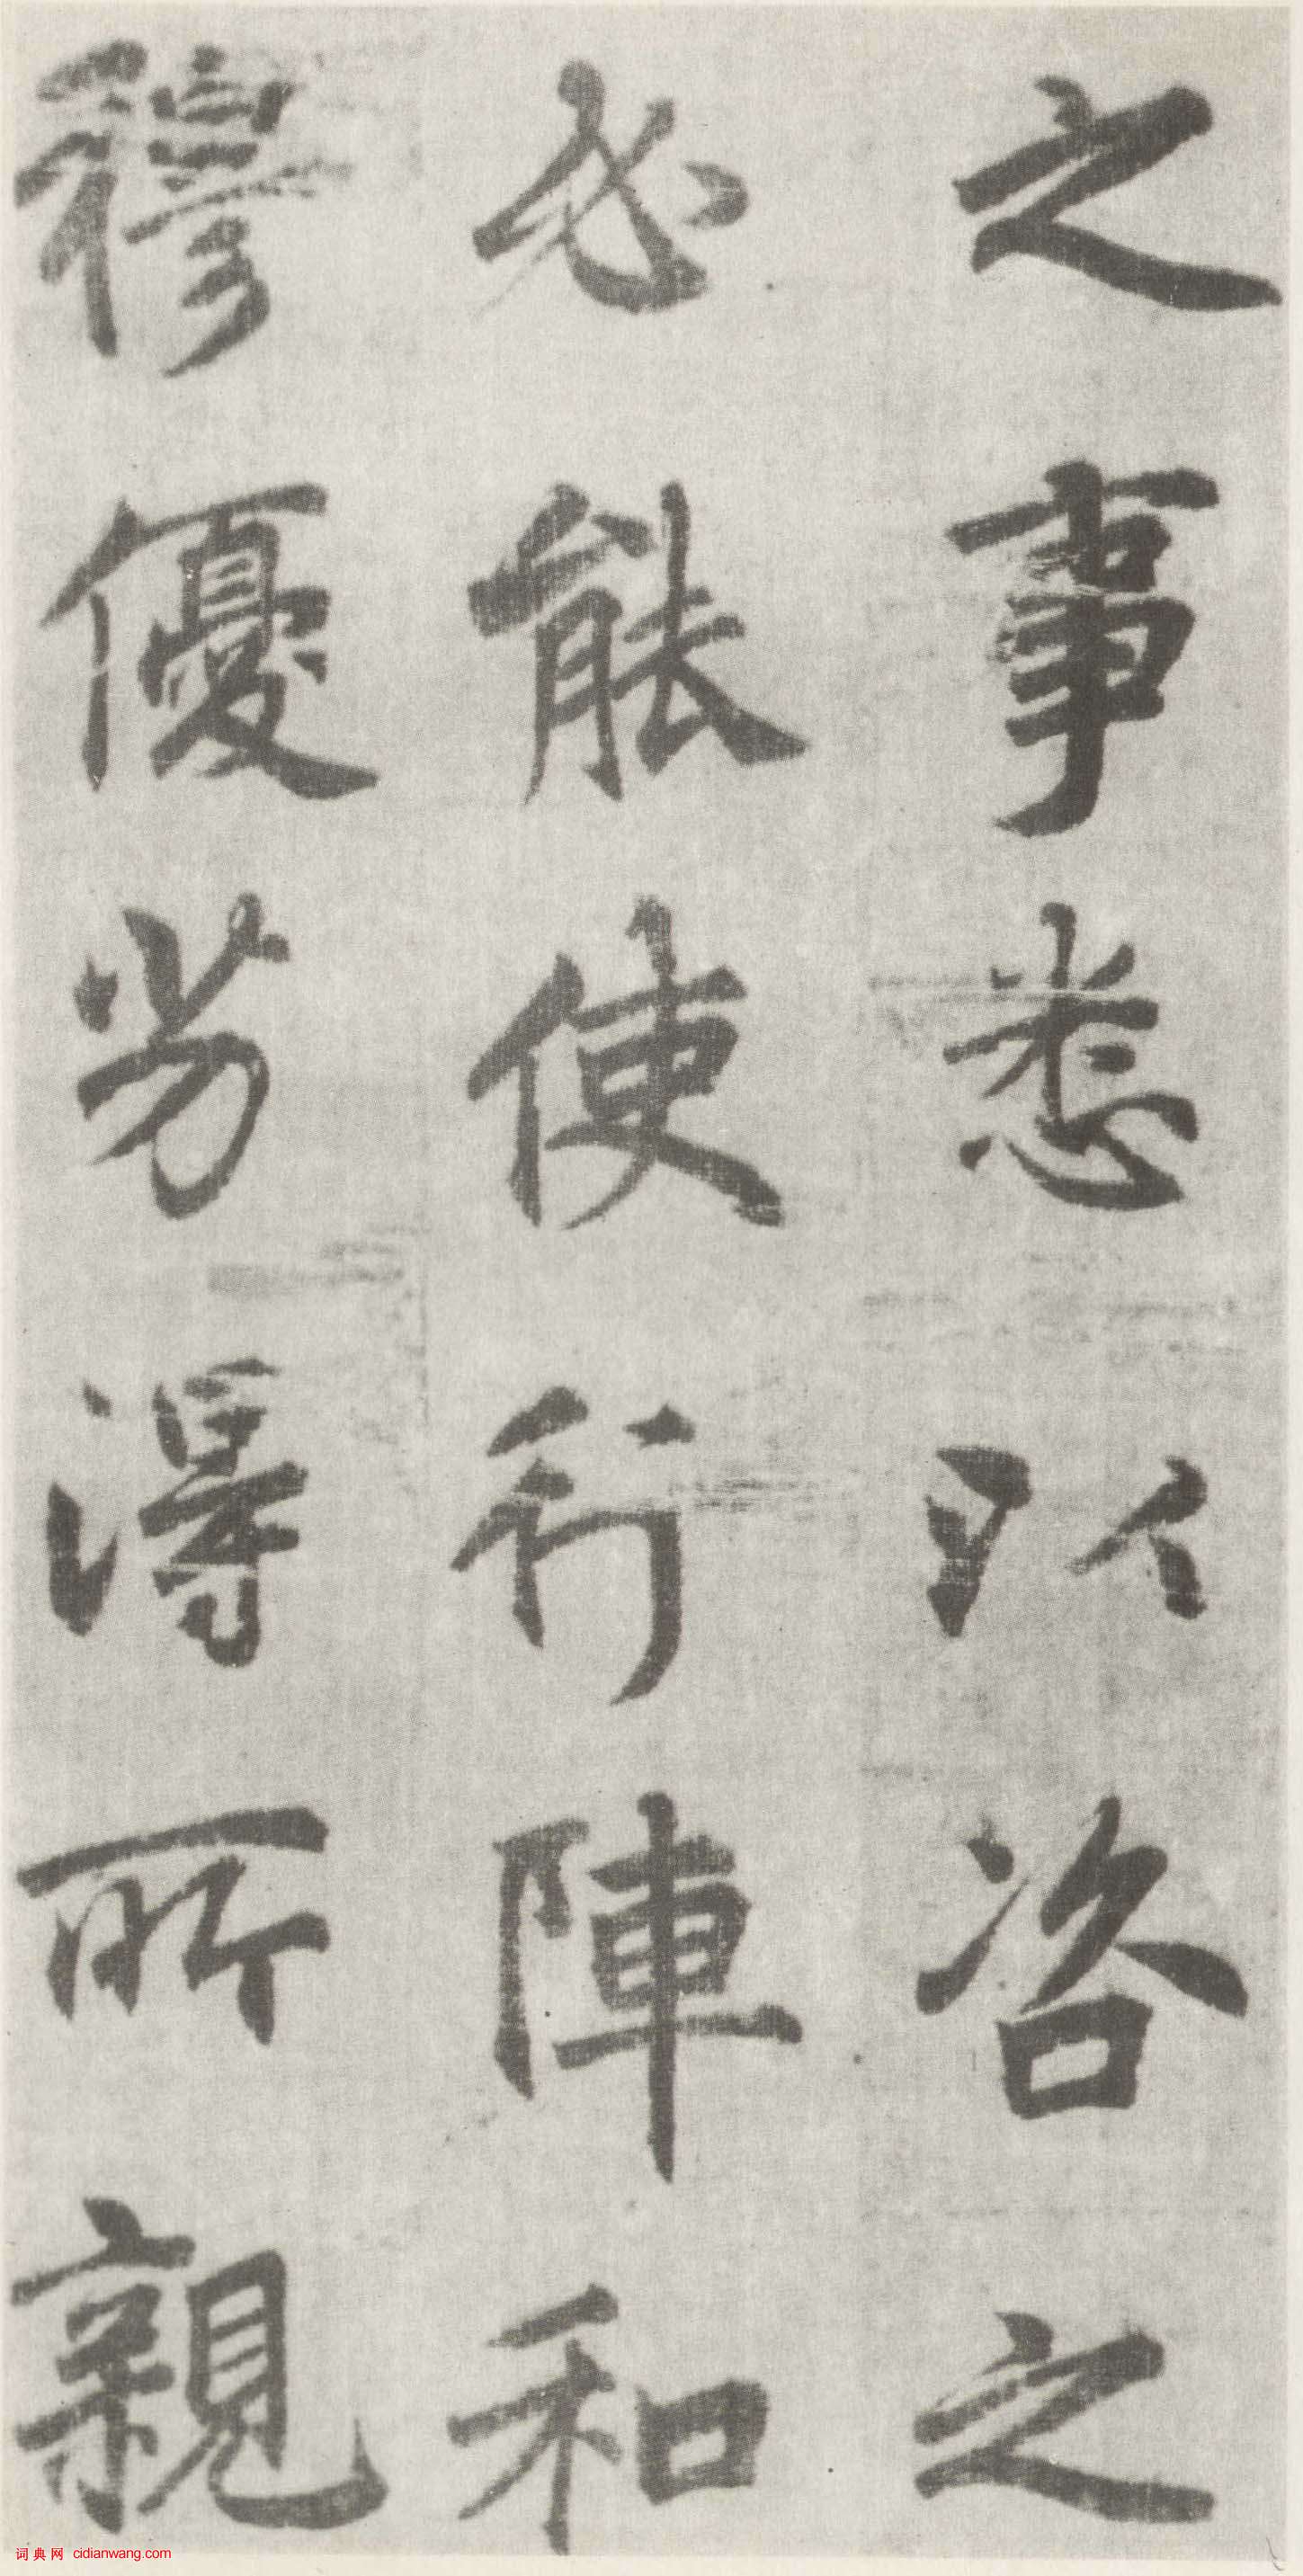 之事悉以咨之
必能使行陣和
穆優劣得所親
词典网 cidianwang.com